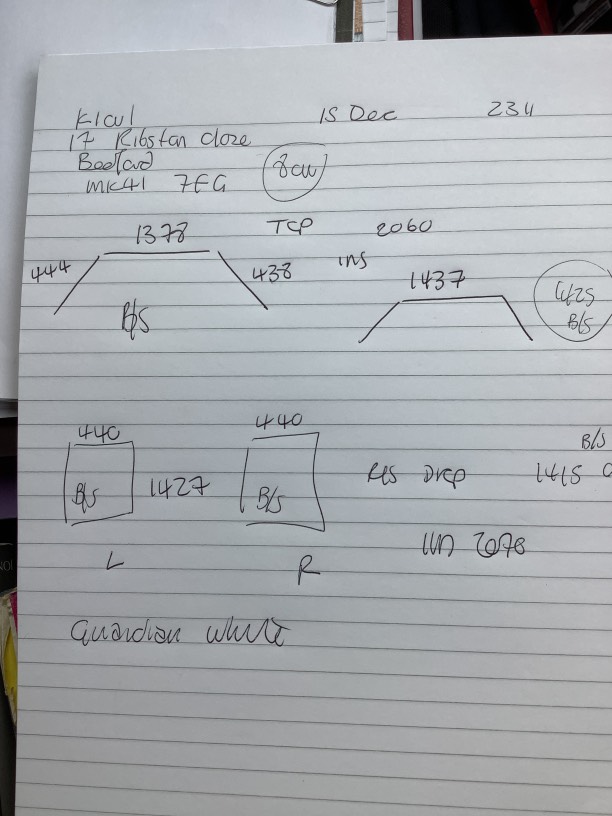 15 Dec 234
17 Ribstan Close
Bedford
MK41 7EG
1378 TCP 2060
444 438 ins 1437
B/S
B/S
440 440
B/S
B/S 1427 B/S Drop 1415
L R 2078
Guardian white